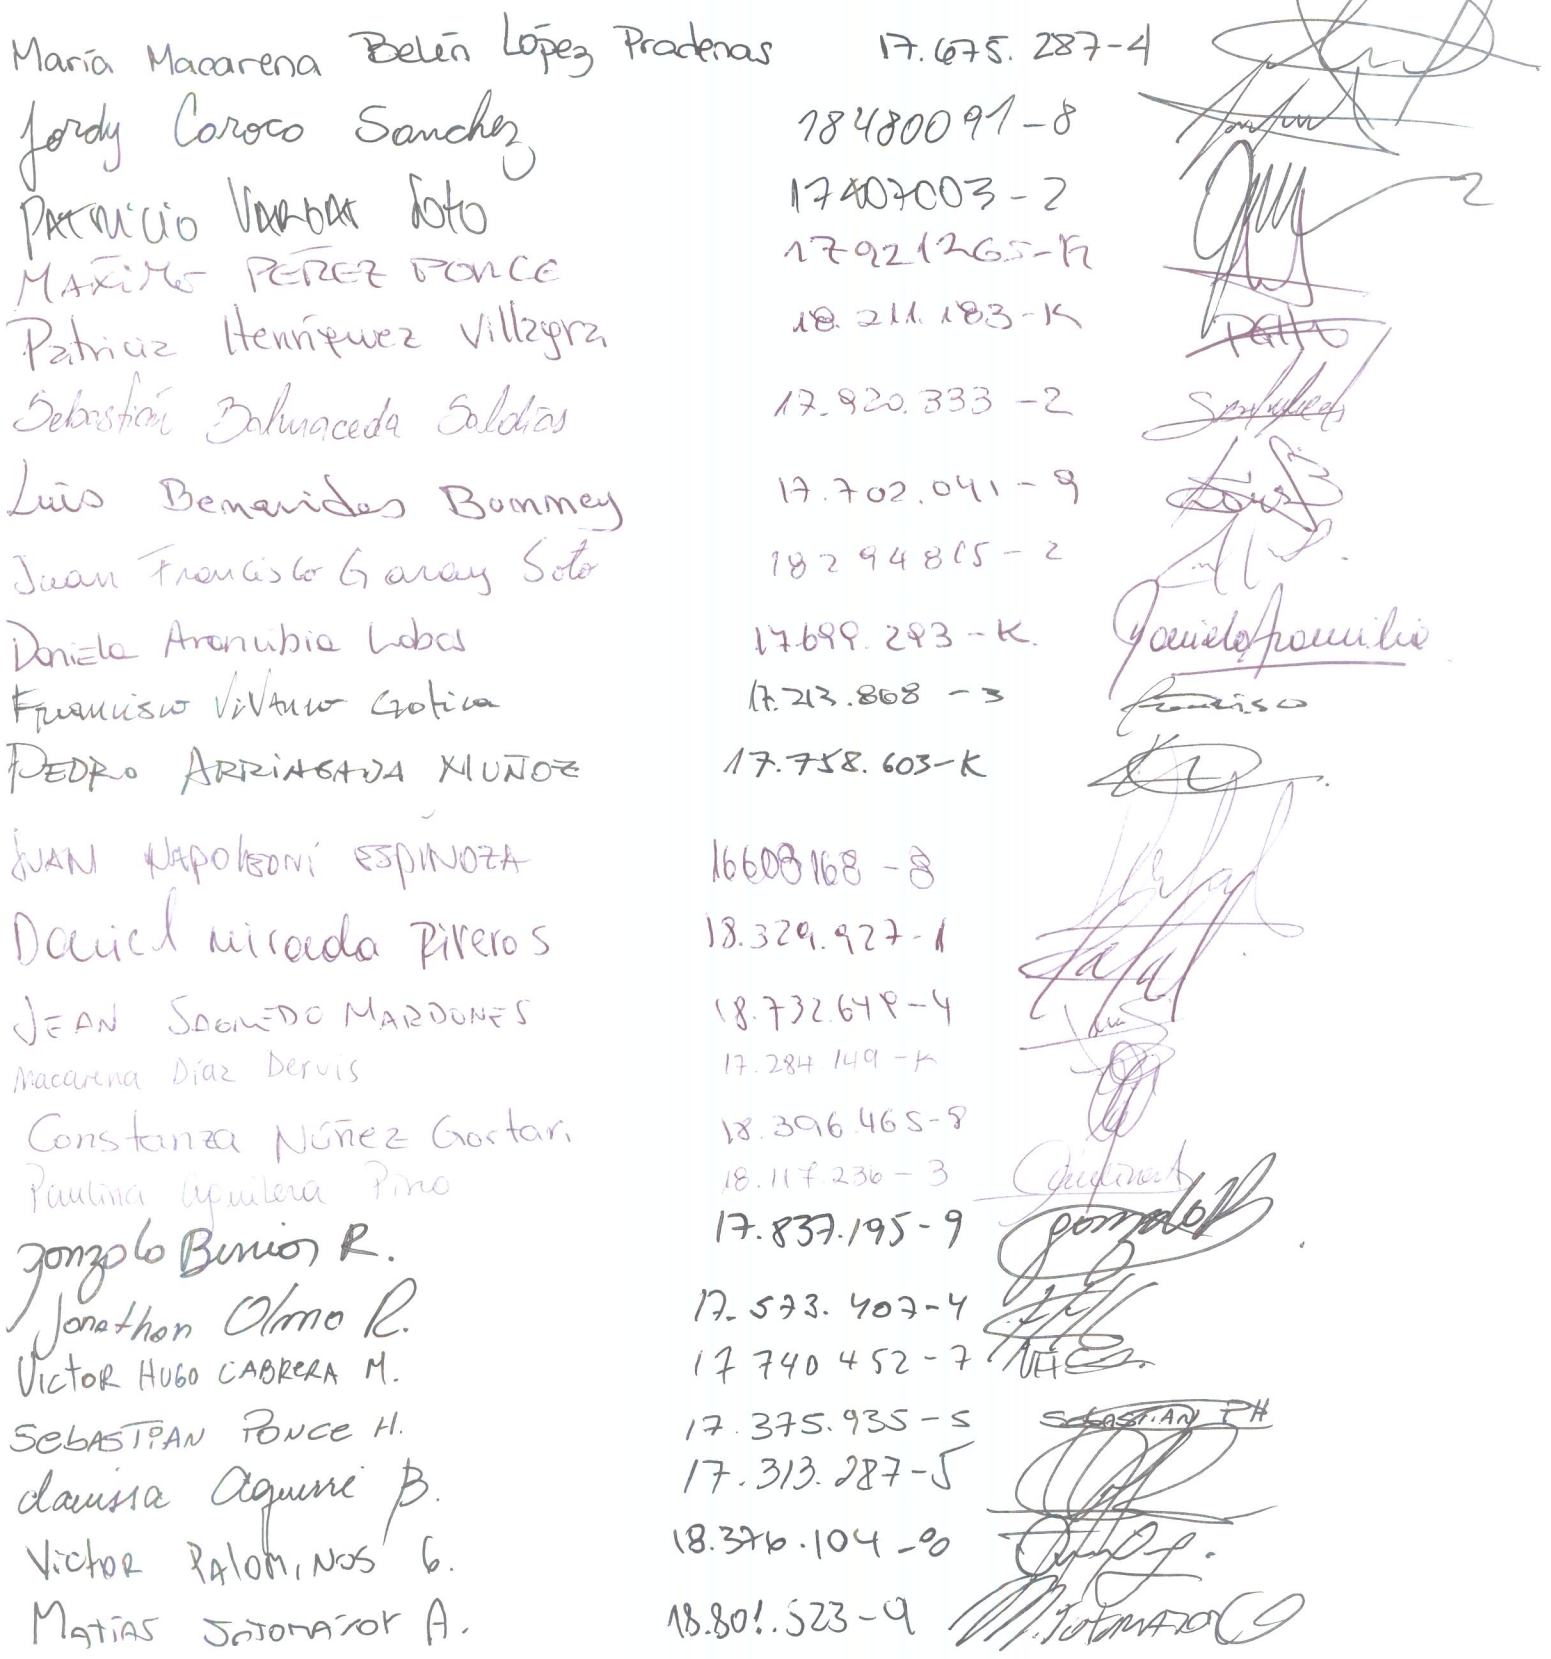 María Macarena Belén López Pradenas 17.675.287-4
Jordy Coroco Sanchez 18480091-8
PATRICIO VARGAS Soto 17407003-2
MAXiMo PEREZ PONCE 17921265-K
Patricia Henríquez Villagra 18.211.183-K
Sebastián Balmaceda Saldías 17.920.333-2
Luis Benavides Bommey 17.702.041-9
Juan Francisco Garay Soto 18294815-2
Daniela Aranibia Lobos 17.699.293-K. Daniela Aranibia
Francisco ViVanco 17.213.868-3 Francisco
PEDRO ARRIAGADA MUÑOZ 17.758.603-K
JUAN NAPOLEONí ESPINOZA 16608168-8
Daniel miranda Riveros 18.329.927-1
JEAN SAGREDO MARDONES 18.732.649-4
Macarena Díaz Dervis 17.284.149-K
Constanza Núñez Gortari 18.396.465-8
Paulina aguilera Pino 18.117.236-3
gonzalo Berrios R. 17.837.195-9 gonzalo B
Jonathan Olmo R. 17.573.407-4
Victor HUGO CABRERA M. 17740452-7
SebASTIAN PONCE H. 17.375.935-5 SebASTIAN PH
clarissa Aguirre B. 17.313.287-5
Victor PALOMiNOS G. 18.376.104-8
MATíAS SOTOMAYOR A. 18.801.523-9 M.SOTOMAYOR